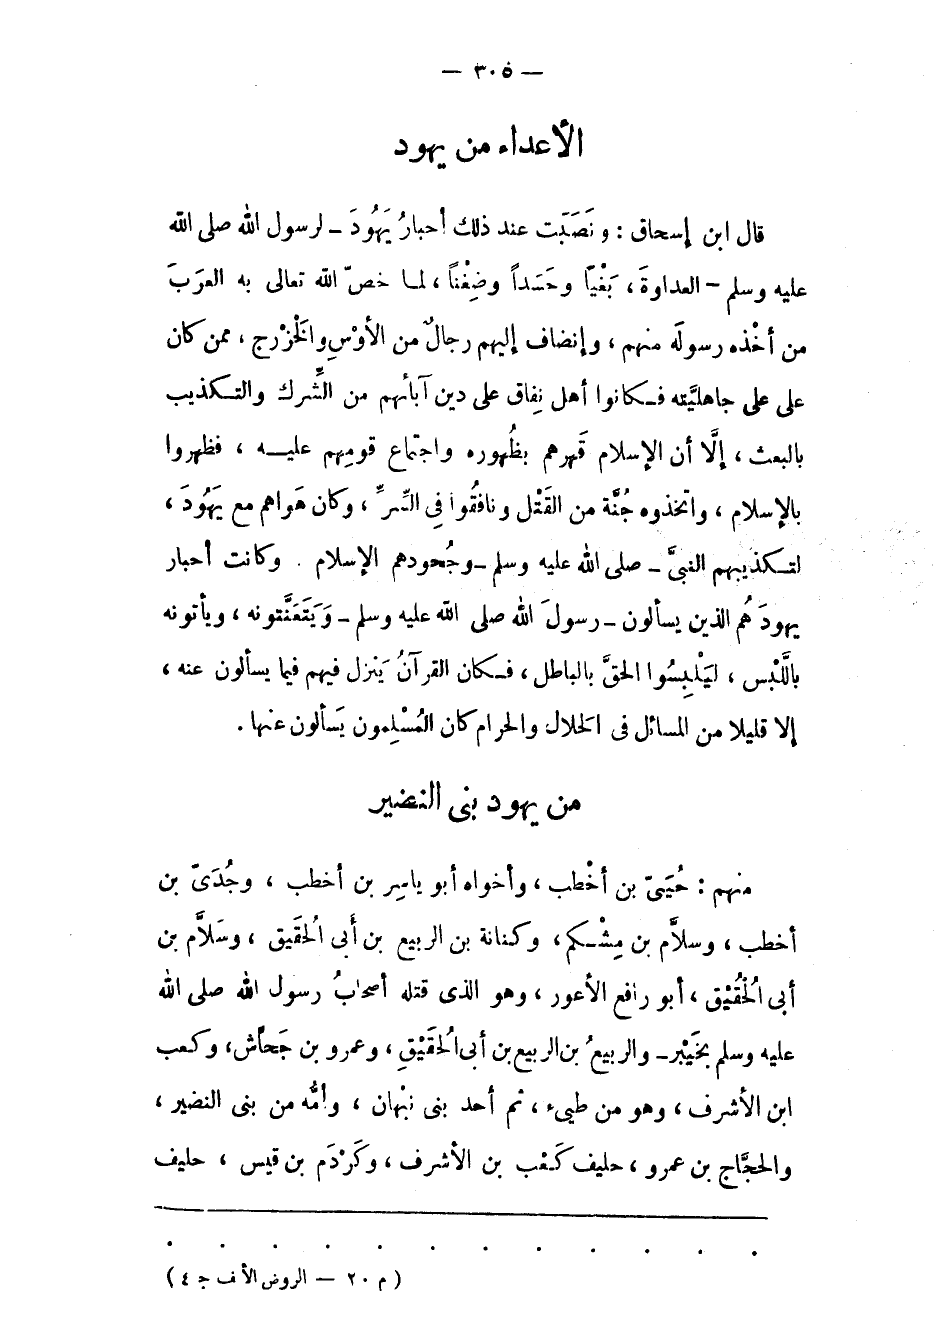 — ٣٠٥ —
الأعداء من يهود
قال ابن إسحاق : ونَصَبَت عند ذلك أحبارُ يَهُودَ ــ لرسول الله صلى الله
عليه وسلم – العداوةَ ، بَغْيًا وحَسَداً وضِغْناً ، لما خصّ الله تعالى به العرَبَ
من أخْذه رسولَه منهم ، وإنضاف إليهم رجالٌ من الأوْسِ والْخزْرج ، ممن كان
على على جاهليَّته فكانوا أهل نِفاق على دين آبائهم من الشِّرك والتكذيب
بالبعث ، إلَّا أن الإسلام قَهرهم بظُهوره واجتماع قومِهم عليه ، فظهروا
بالإسلام ، واتخذوه جُنَّة من القَتْل ونافَقُوا فِى السِّر ، وكان هَواهم مع يَهُودَ ،
لتكذيبهم النبىَّ ــ صلى الله عليه وسلم ــ وجُحودهم الإسلام . وكانت أحبار
يهودَ هُم الذين يسألون ــ رسولَ الله صلى الله عليه وسلم ــ وَيَتَعَنَّتونه ، ويأتونه
باللَّبْس ، ليَلْبِسُوا الحقَّ بالباطل ، فكان القرآنُ يَنزل فيهم فيما يسألون عنه ،
إلا قليلا من المسائل فى الحلال والحرام كان المُسْلِمون يَسألون عنها .
من يهود بنى النضير
منهم : حُيَىّ بن أخْطب ، وأخواه أبو ياسِر بن أخطب ، وجُدَىّ بن
أخطب ، وسلاَّم بن مِشْكم ، وكنانة بن الربيع بن أَبى الُحقَيق ، وسَلاَّم بن
أبى الُحْقَيْق ، أبو رافع الأعور ، وهو الذى قتله أصحابُ رسول الله صلى الله
عليه وسلم بخَيْبر ــ والربيعُ بن الربيع بن أبى الُحقَيْقِ ، وعمرو بن جَحاَّش ، وكعب
ابن الأشرف ، وهو من طيىء ، ثم أحد بنى نبْهان ، وأمُّه من بنى النضير ،
والحجَّاج بن عمرو ، حليف كَعْب بن الأشرف ، وكَرْدَم بن قيس ، حليف
. . . . . . . . . . . .
( م ٢٠ — الروض الأنف ج ٤ )